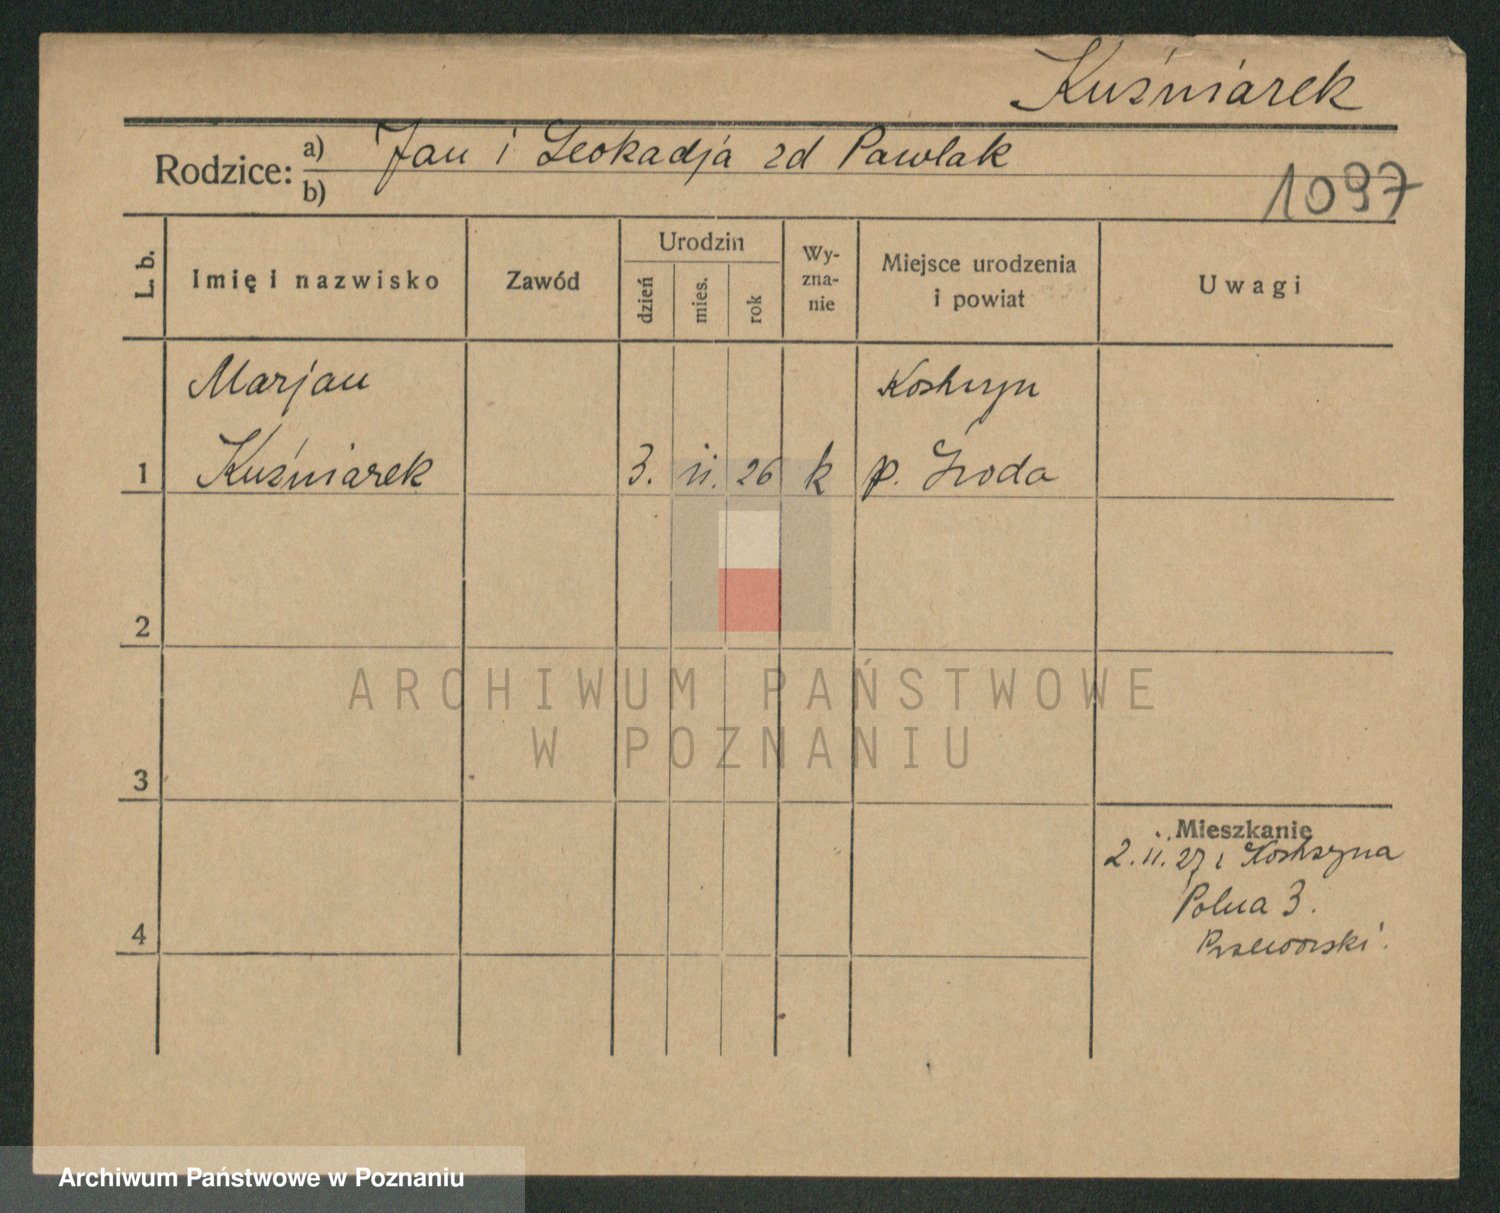 Kuśniarek
Rodzice: a) Jan i Leokadja zd Pawlak
b)
1097
L. b.
Imię i nazwisko
Zawód
Urodzin
dzień
mies.
rok
Wy-
zna-
nie
Miejsce urodzenia
i powiat
Uwagi
Marjan
Kostrzyn
1 Kuśniarek 3. 11. 26 k p. Środa
2
ARCHIWUM PAŃSTWOWE
W POZNANIU
3
Mieszkanie
2. 11. 27 z Kostrzyna
Polna 3.
4
Archiwum Państwowe w Poznaniu